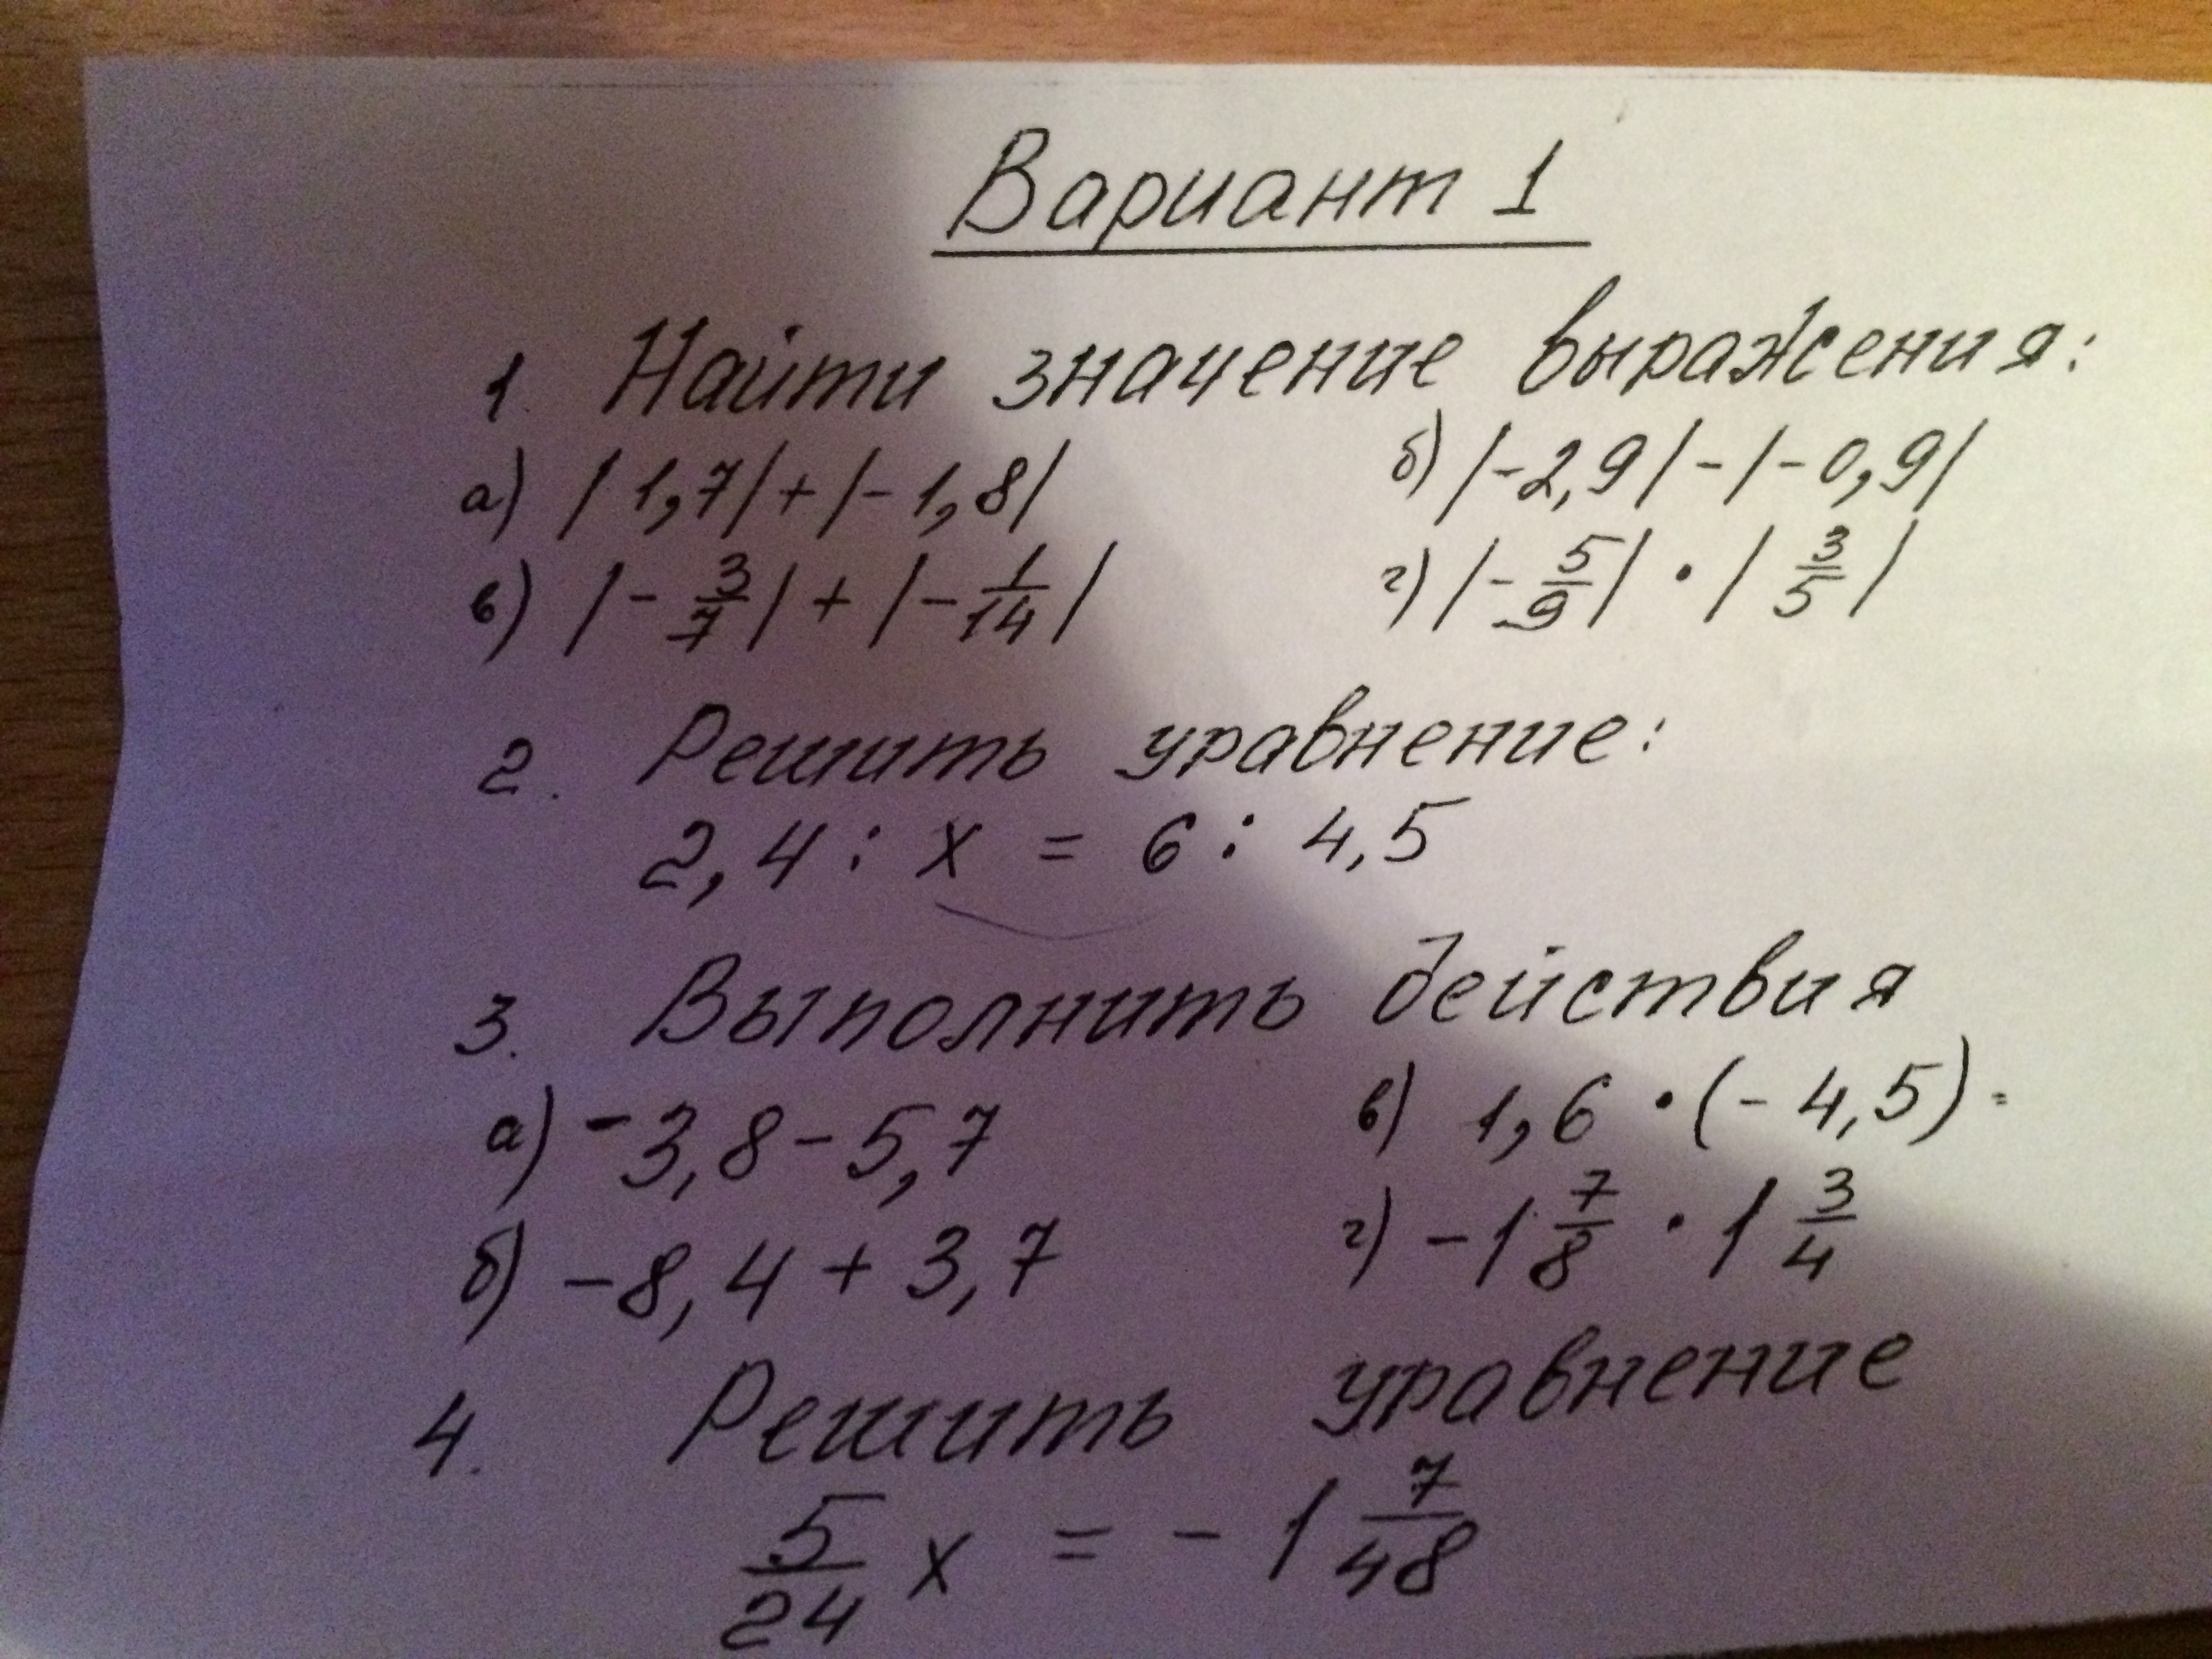 Вариант 1
1. Найти значение выражения:
а) |1,7| + |-1,8| б) |-2,9| - |-0,9|
в) |-3/7| + |-1/14| г) |-5/9| • |3/5|
2. Решить уравнение:
2,4 : x = 6 : 4,5
3. Выполнить действия
а) -3,8 - 5,7 в) 1,6 • (-4,5) =
б) -8,4 + 3,7 г) -1 7/8 • 1 3/4
4. Решить уравнение
5/24 x = -1 7/48